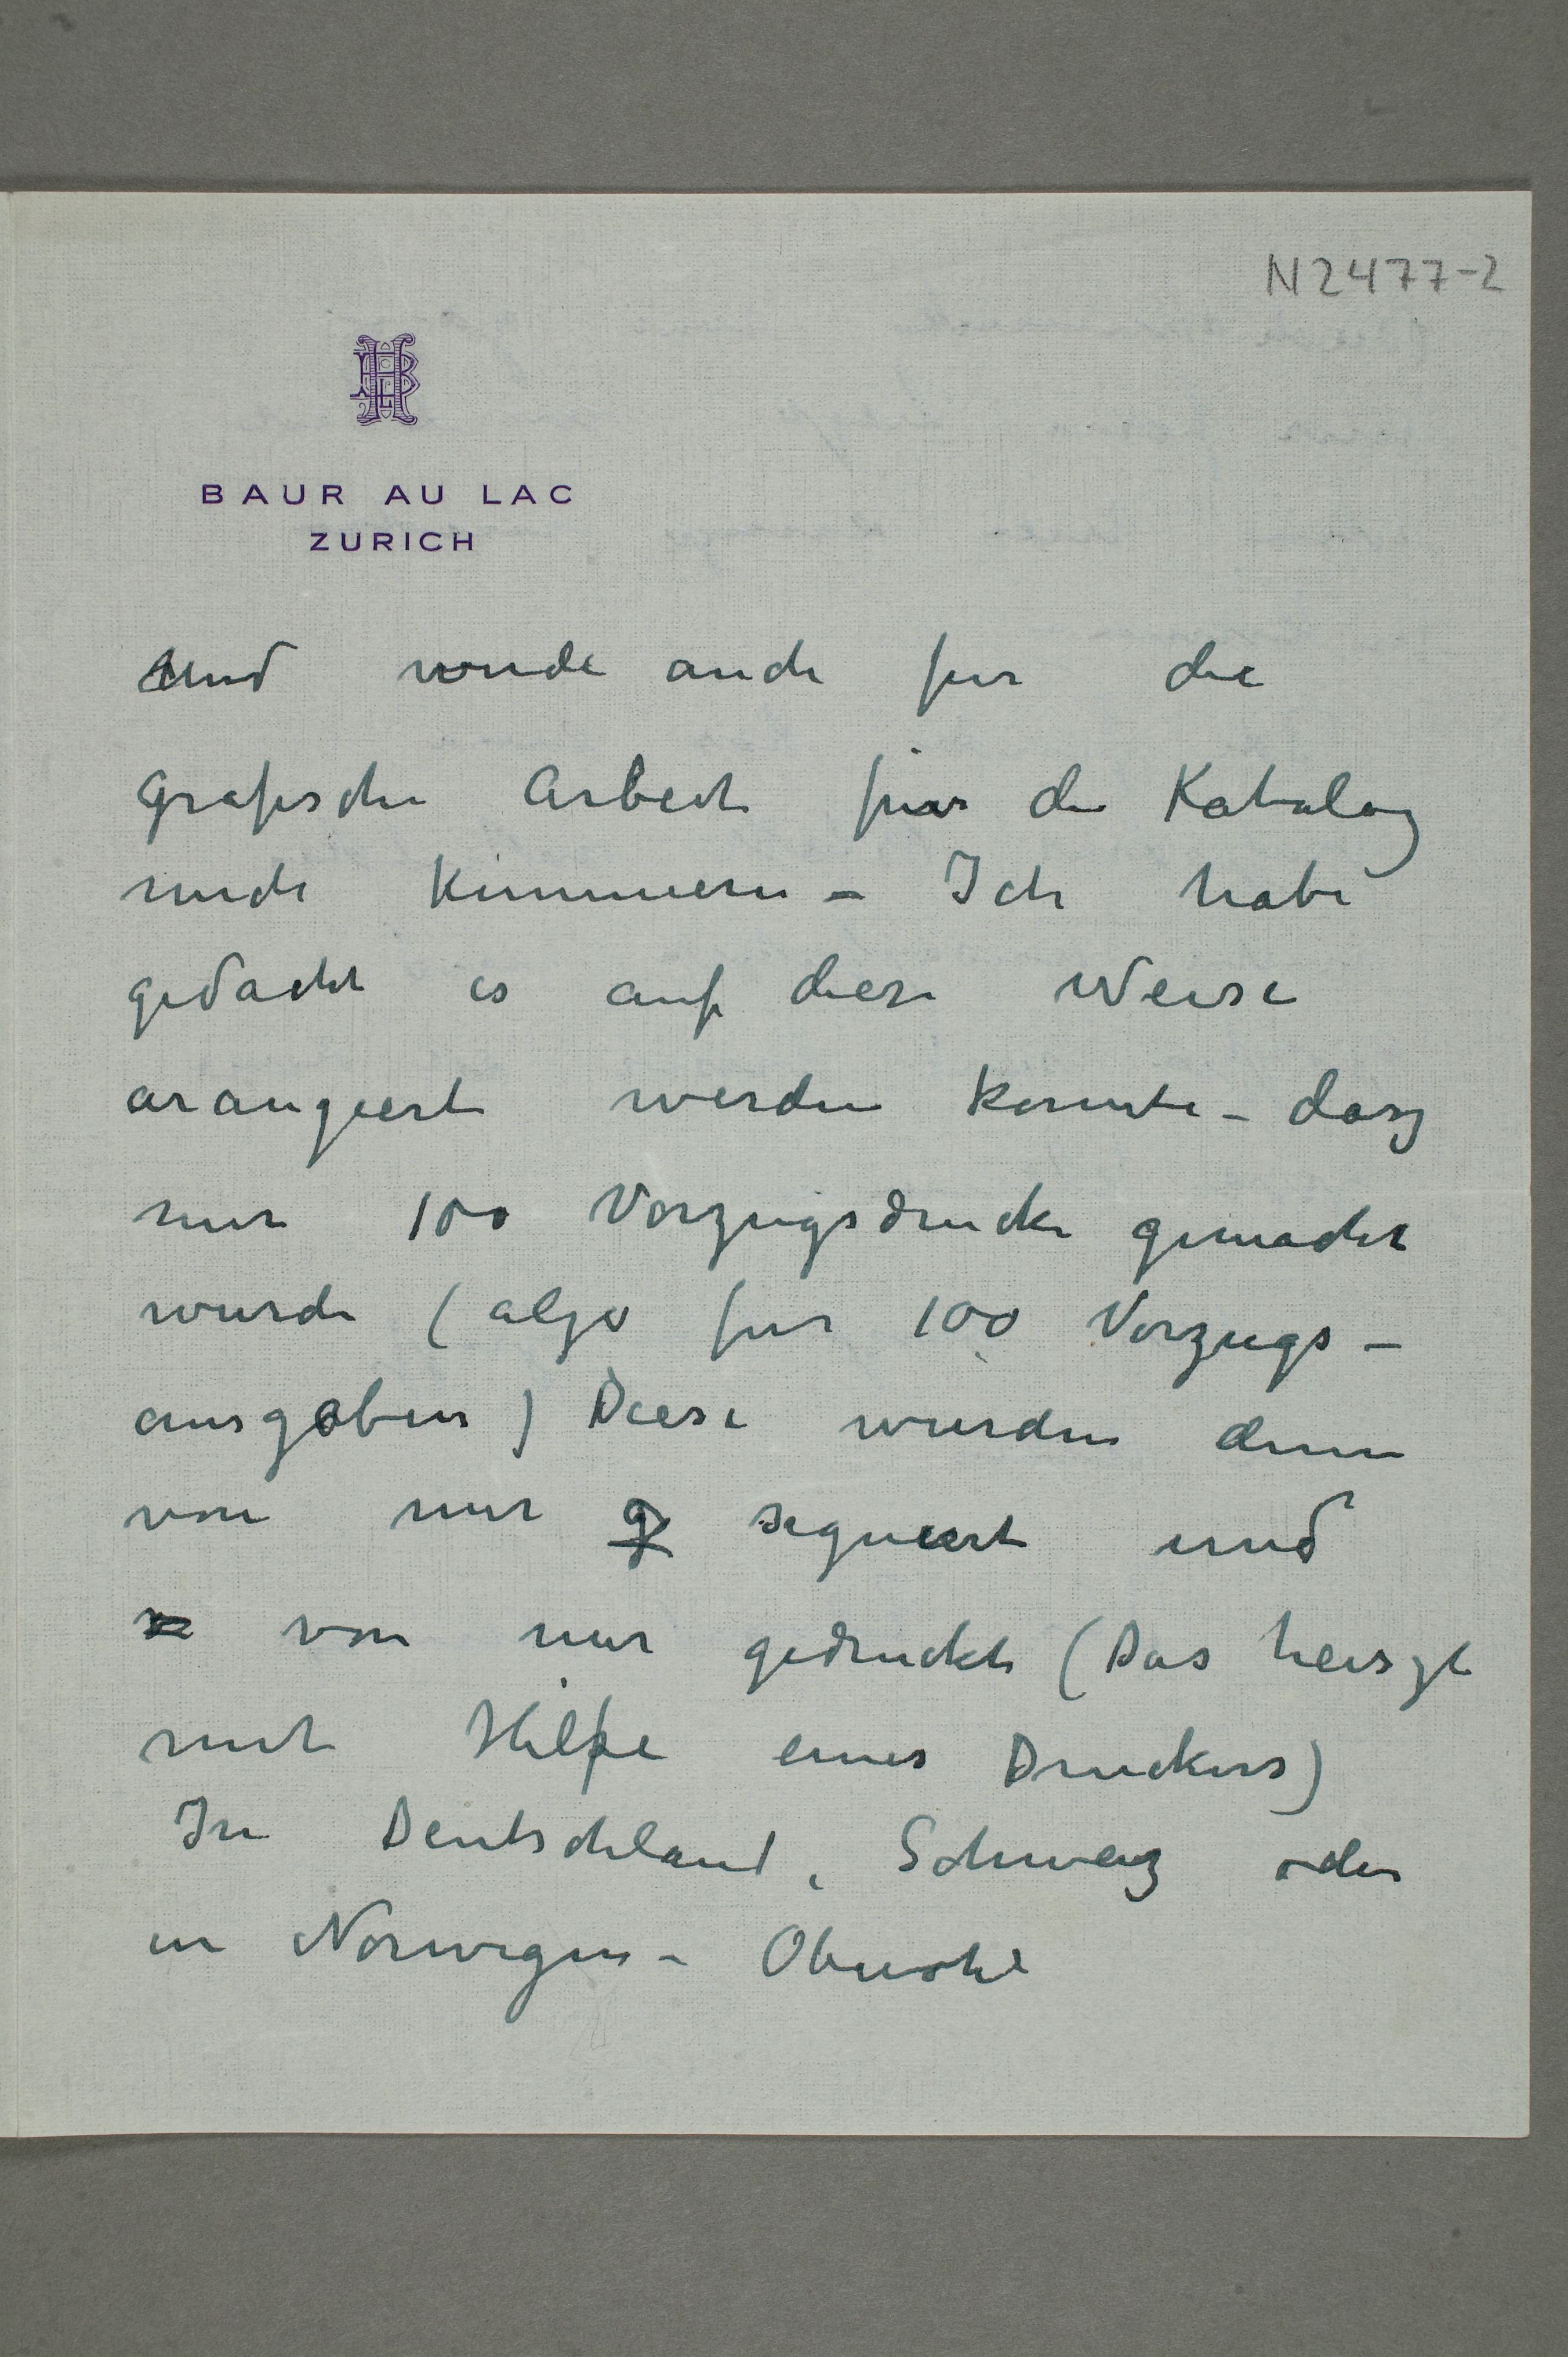 N2477-2
BAUR AU LAC
ZURICH
Und wurde auch fur die
grafische Arbeit fur die Katalog
mich kümmern – Ich habe
gedacht es auf diese Weise
arangiert werden konnte – dasz
nur 100 Vorzugsdrucke gemacht
wurde (also fur 100 Vorzugs–
ausgaben) Diese wurden denn
von mir g signiert und
von mir gedruckt (Das heiszt
mit Hilfe eines Druckers)
In Deutschland, Schweiz oder
in Norwegen – Obwohl